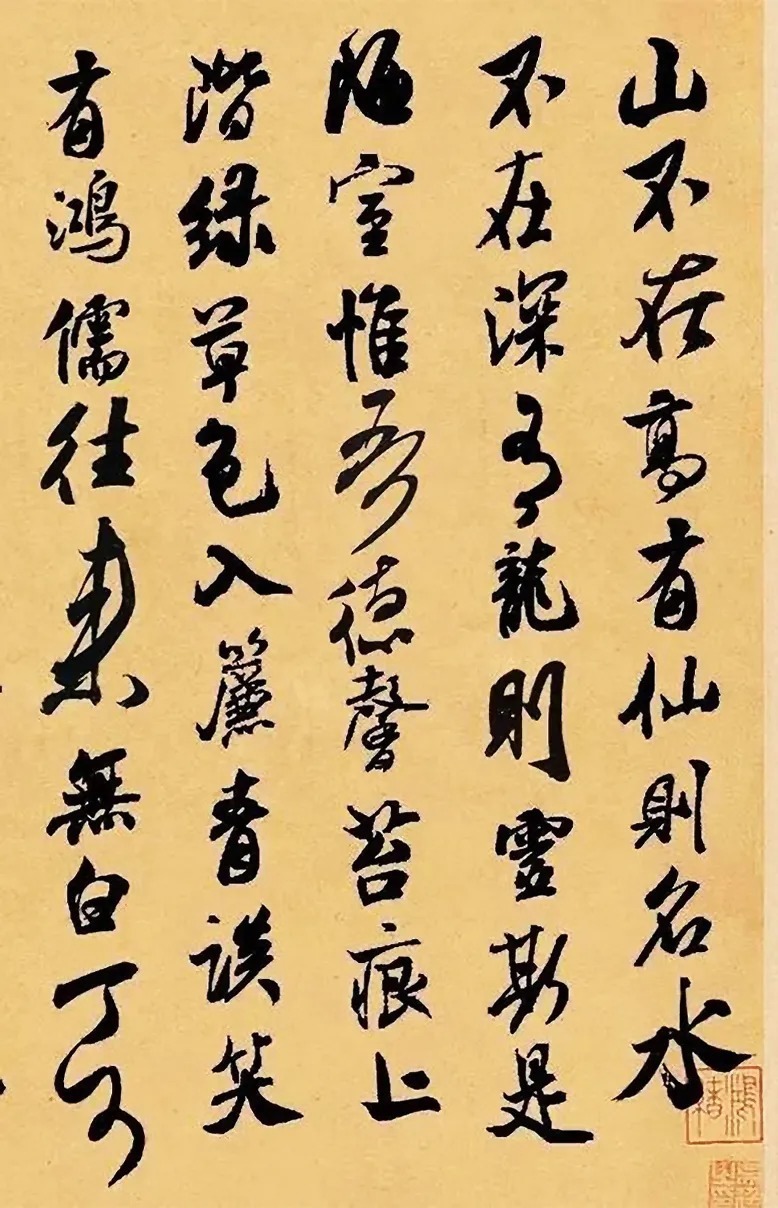 山不在高有仙則名水
不在深有龍則靈斯是
陋室惟吾德馨苔痕上
階緑草色入簾青談笑
有鴻儒往來無白丁可